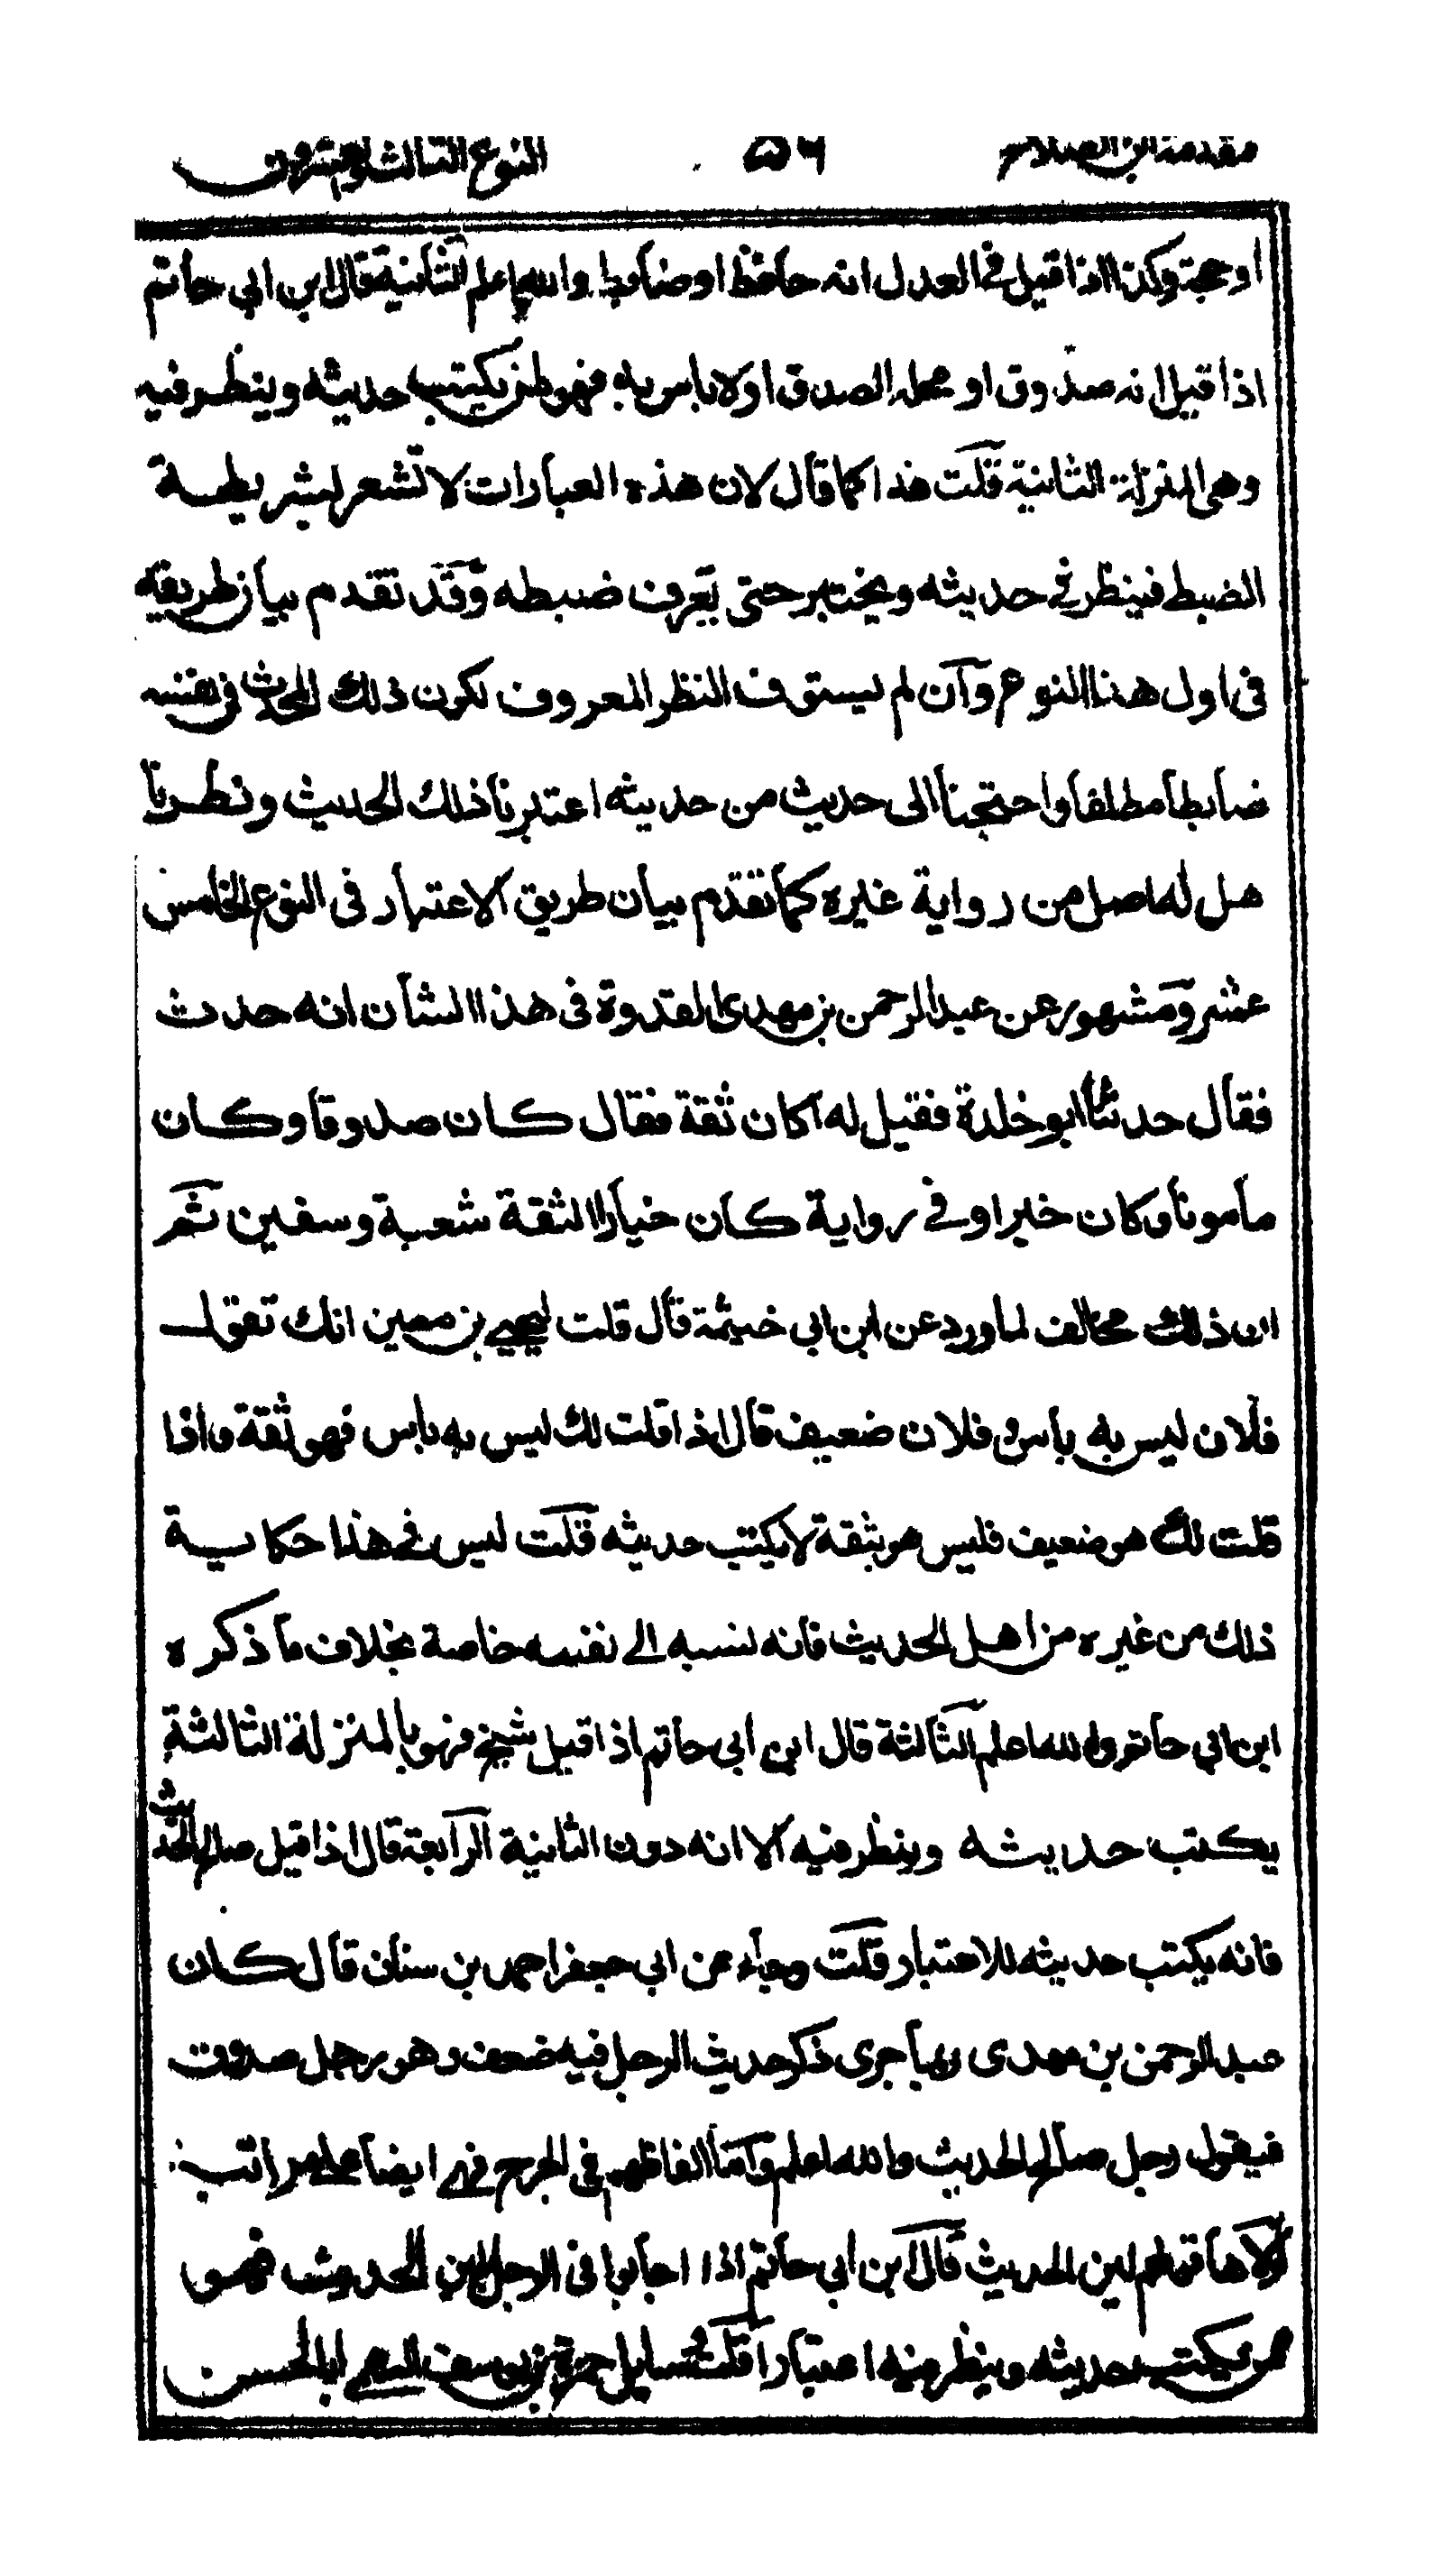 مقدمة ابن الصلاح ٥٦ النوع الثالث والعشرون
او حجة وكذا اذا قيل في العدل انه حافظ او ضابط والله اعلم الثانية قال ابن ابي حاتم
اذا قيل انه صدوق او محله الصدق او لا باس به فهو ممن يكتب حديثه وينظر فيه
وهي المنزلة الثانية قلت هذا كما قال لان هذه العبارات لا تشعر بشريطة
الضبط فينظر في حديثه ويختبر حتى يعرف ضبطه وقد تقدم بيان طريقه
في اول هذا النوع وان لم يستوف النظر المعروف لكون ذلك المحدث في نفسه
ضابطا مطلقا واحتجنا الى حديث من حديثه اعتبرنا ذلك الحديث ونظرنا
هل له اصل من رواية غيره كما تقدم بيان طريق الاعتبار في النوع الخامس
عشر ومشهور عن عبد الرحمن بن مهدى القدوة في هذا الشان انه حدث
فقال حدثنا ابو خلدة فقيل له اكان ثقة فقال كان صدوقا وكان
مامونا وكان خيرا وفي رواية كان خيارا الثقة شعبة وسفين ثم
ان ذلك مخالف لما ورد عن ابن ابي خيثمة قال قلت ليحيى بن معين انك تقول
فلان ليس به باس وفلان ضعيف قال اذا قلت لك ليس به باس فهو ثقة واذا
قلت لك هو ضعيف فليس هو بثقة لا يكتب حديثه قلت ليس في هذا حكاية
ذلك من غيره من اهل الحديث فانه نسبه الى نفسه خاصة بخلاف ما ذكره
ابن ابي حاتم والله اعلم الثالثة قال ابن ابي حاتم اذا قيل شيخ فهو بالمنزلة الثالثة
يكتب حديثه وينظر فيه الا انه دون الثانية الرابعة قال اذا قيل صالح الحديث
فانه يكتب حديثه للاعتبار قلت وجاء عن ابي جعفر احمد بن سنان قال كان
عبد الرحمن بن مهدى ربما جرى ذكر حديث الرجل فيه ضعف وهو رجل صدوق
فيقول رجل صالح الحديث والله اعلم واما الفاظهم في الجرح فهي ايضا على مراتب
اولاها قولهم لين الحديث قال ابن ابي حاتم اذا اجابوا في الرجل بلين الحديث فهو
ممن يكتب حديثه وينظر فيه اعتبارا قلت وسايل حمزة بن يوسف السهمي ابا الحسن